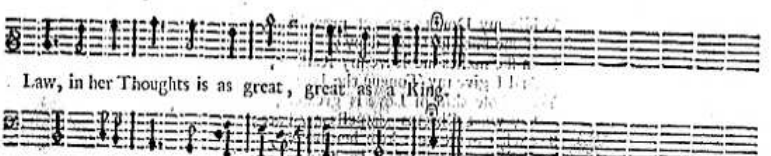 Law, in her Thoughts is as great, great as a King.